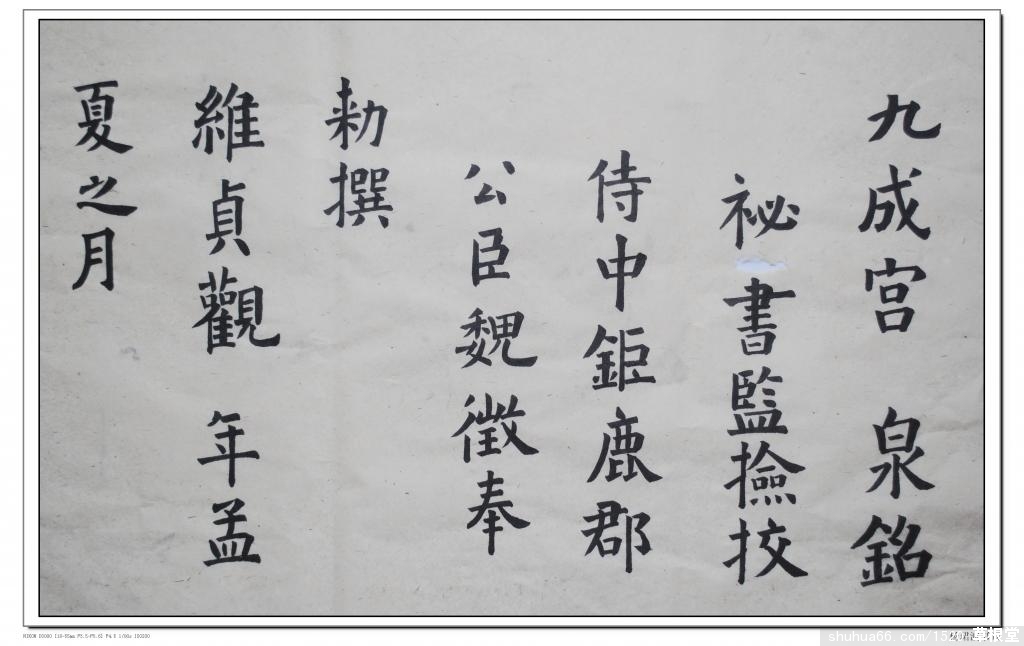 九成宫 泉銘
祕書監撿挍
侍中鉅鹿郡
公臣魏徵奉
勑撰
維貞觀 年孟
夏之月
shuhua66.com/15
草根堂